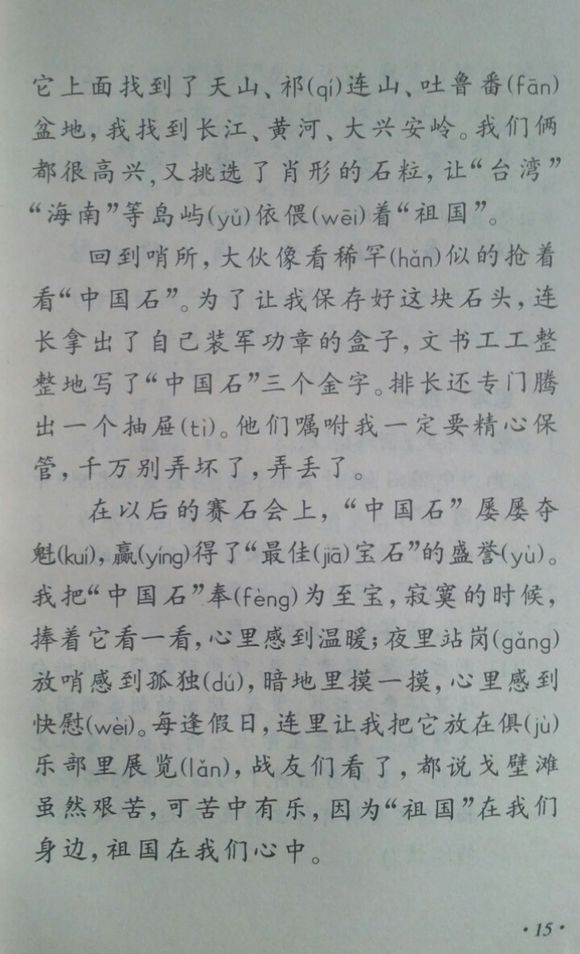 它上面找到了天山、祁(qí)连山、吐鲁番(fān)
盆地,我找到长江、黄河、大兴安岭。我们俩
都很高兴,又挑选了肖形的石粒,让“台湾”
“海南”等岛屿(yǔ)依偎(wēi)着“祖国”。
回到哨所,大伙像看稀罕(hǎn)似的抢着
看“中国石”。为了让我保存好这块石头,连
长拿出了自己装军功章的盒子,文书工工整
整地写了“中国石”三个金字。排长还专门腾
出一个抽屉(ti)。他们嘱咐我一定要精心保
管,千万别弄坏了,弄丢了。
在以后的赛石会上,“中国石”屡屡夺
魁(kuí),赢(yíng)得了“最佳(jiā)宝石”的盛誉(yù)。
我把“中国石”奉(fèng)为至宝,寂寞的时候,
捧着它看一看,心里感到温暖;夜里站岗(gǎng)
放哨感到孤独(dú),暗地里摸一摸,心里感到
快慰(wèi)。每逢假日,连里让我把它放在俱(jù)
乐部里展览(lǎn),战友们看了,都说戈壁滩
虽然艰苦,可苦中有乐,因为“祖国”在我们
身边,祖国在我们心中。
·15·